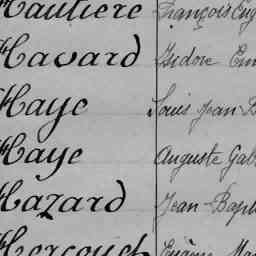 Hautière François Eug
Havard Isidore Em
Haye Louis Jean B
Haye Auguste Gab
Hazard Jean-Bapt
Hercouet Eugène Ma